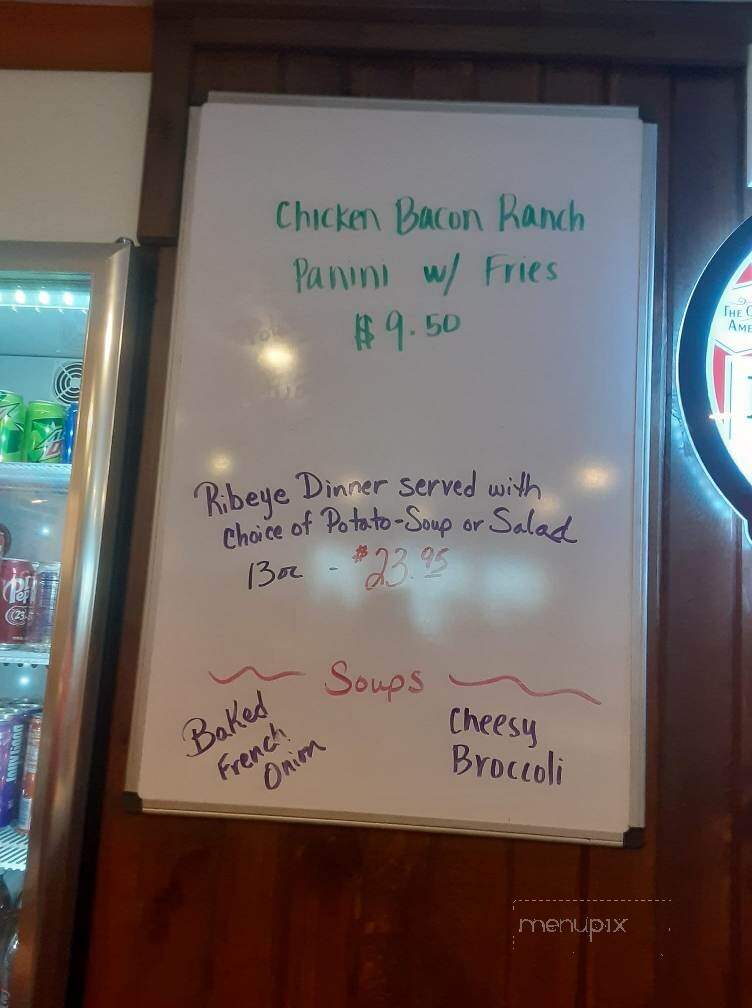 Chicken Bacon Ranch
Panini w/ Fries
$9.50
Ribeye Dinner served with
choice of Potato-Soup or Salad
13oz - $23.95
Soups
Baked
French
Onion
Cheesy
Broccoli
Dr
Pepper
23
THE
AME
menupix